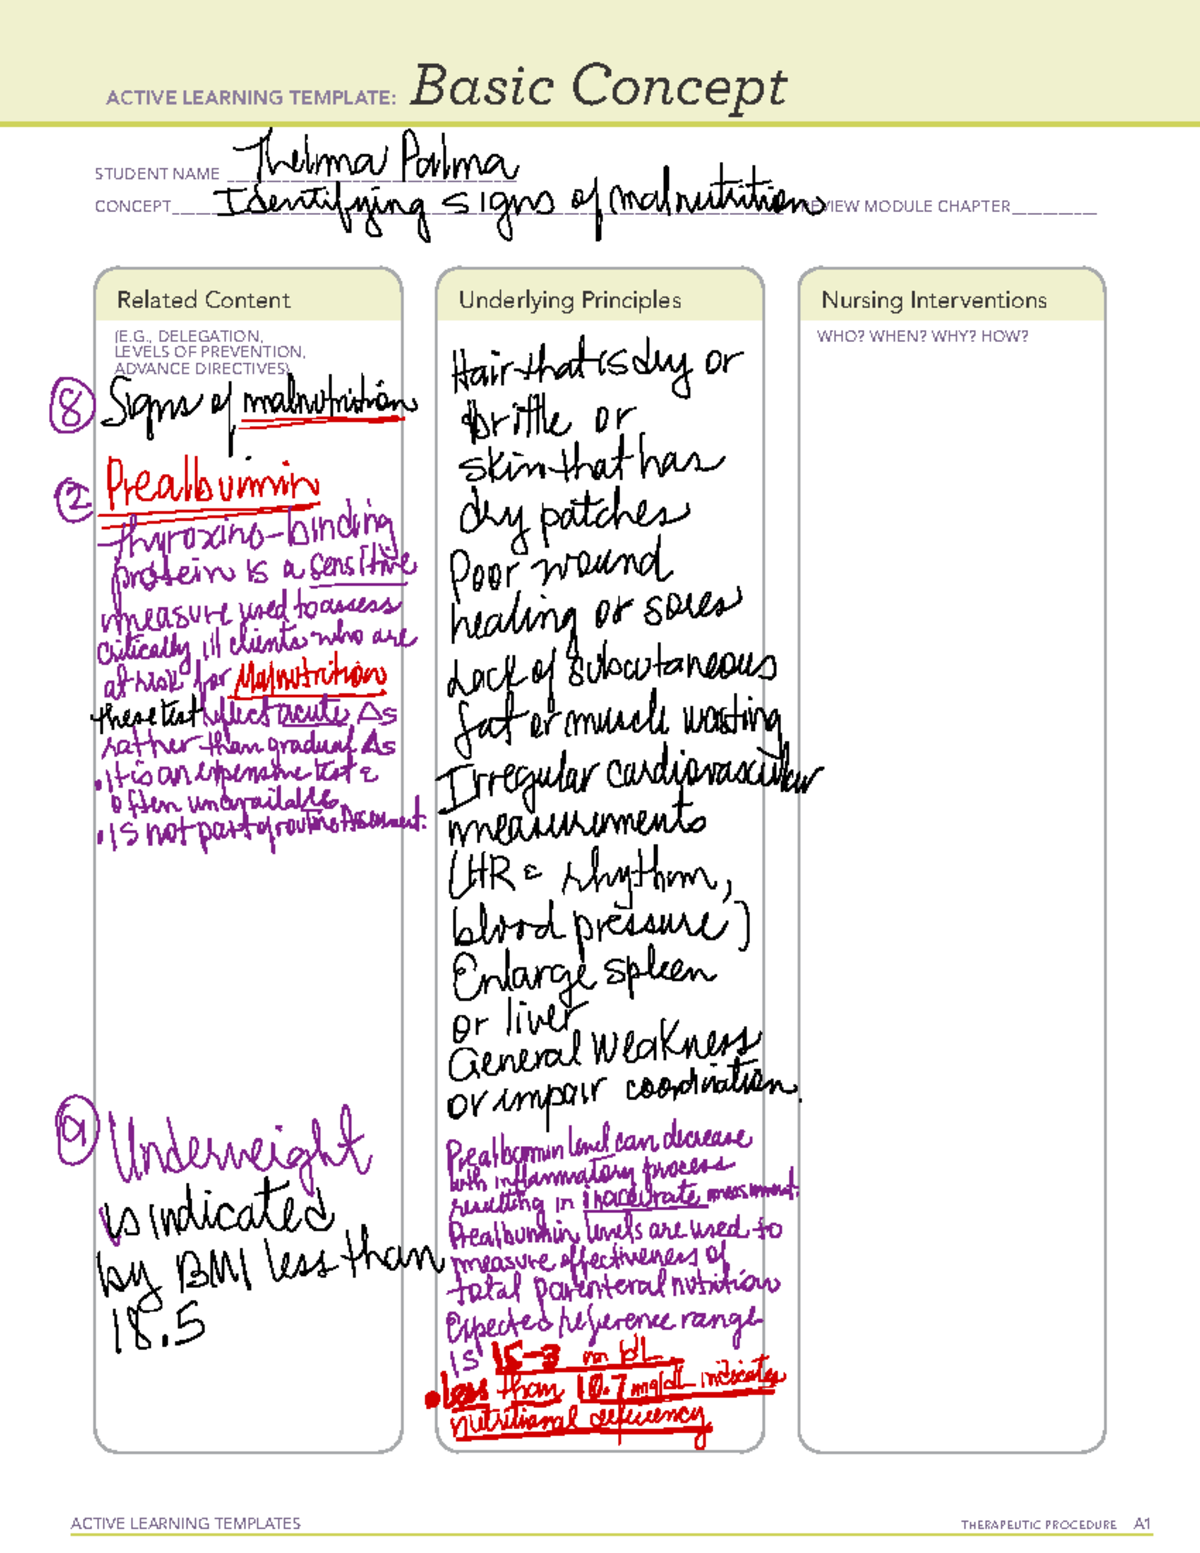 ACTIVE LEARNING TEMPLATE: Basic Concept
STUDENT NAME Thelma Palma
CONCEPT Identifying signs of malnutrition REVIEW MODULE CHAPTER
Related Content
(E.G., DELEGATION,
LEVELS OF PREVENTION,
ADVANCE DIRECTIVES)
8 Signs of malnutrition
2 Prealbumin
thyroxine-binding
protein is a sensitive
measure used to assess
critically ill clients who are
at risk for Malnutrition
these test reflect acute Δs
rather than gradual Δs
• It is an expensive test &
often unavailable
• Is not part of routine Assessment.
a Underweight
is indicated
by BMI less than
18.5
Underlying Principles
Hair that is dry or
brittle or
skin that has
dry patches
Poor wound
healing or sores
Lack of subcutaneous
fat or muscle wasting
Irregular cardiovascular
measurements
(HR & rhythm,
blood pressure)
Enlarge spleen
or liver
General weakness
or impair coordination.
Prealbumin level can decrease
with inflammatory process
resulting in inaccurate measurment.
Prealbumin levels are used to
measure effectiveness of
total parenteral nutrition
Expected reference range
is 15-3 m dL
• Less than 10.7 mg/dL indicates
nutritional deficiency
Nursing Interventions
WHO? WHEN? WHY? HOW?
ACTIVE LEARNING TEMPLATES
THERAPEUTIC PROCEDURE A1